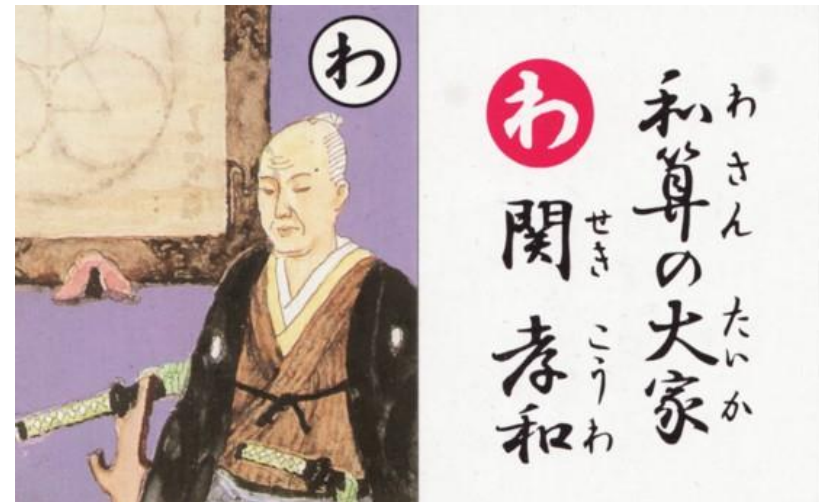 わ
わ
和算の大家
わさん たいか
関孝和
せき こうわ